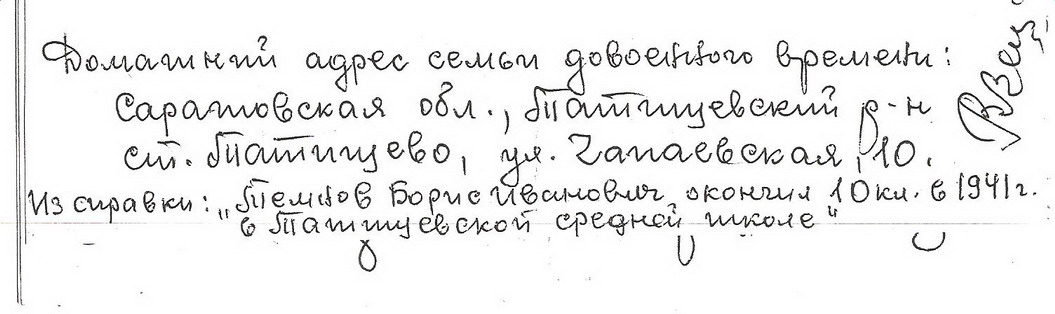 Домашний адрес семьи довоенного времени:
Саратовская обл., Татищевский р-н
ст. Татищево, ул. Чапаевская, 10.
Из справки: „Темнов Борис Иванович окончил 10 кл. в 1941 г.
в Татищевской средней школе"